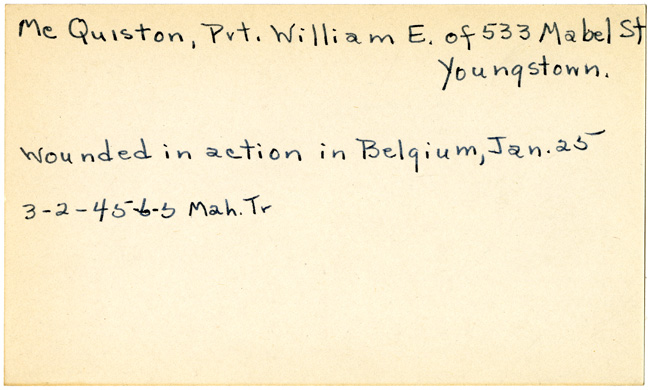 Mc Quiston, Pvt. William E. of 533 Mabel St
Youngstown.
Wounded in action in Belgium, Jan. 25
3-2-45-6-5 Mah. Tr